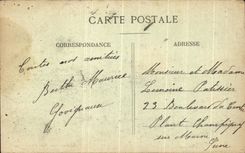 CARTE POSTALE
CORRESPONDANCE
ADRESSE
Toutes nos amitiés
Berthe Maurice
Monsieur et Madame
Lemoine Palissier
23 Boulevard de
Plant Champigny
sur Marne
Seine